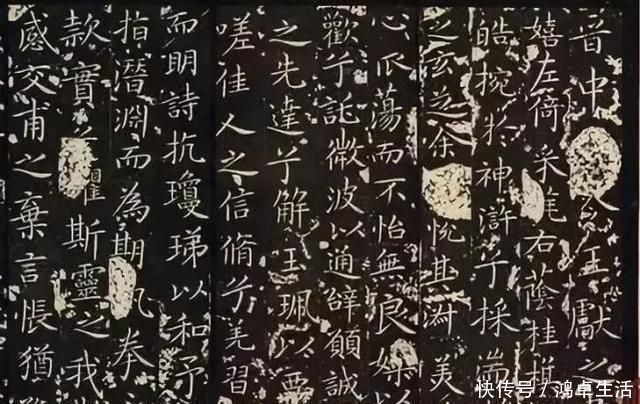 晉中令王獻之
嬉左倚采旄右蔭桂旗
皓捥於神滸兮採湍
之玄芝余悅其淑美
心振蕩而不怡無良媒以
歡兮託微波以通辭願誠
之先達兮解玉珮以要
嗟佳人之信脩兮羌習
而明詩抗瓊珶以和予
指潛淵而為期執奉
款實懼斯靈之我
感交甫之棄言悵猶
快传号/鸿卓生活